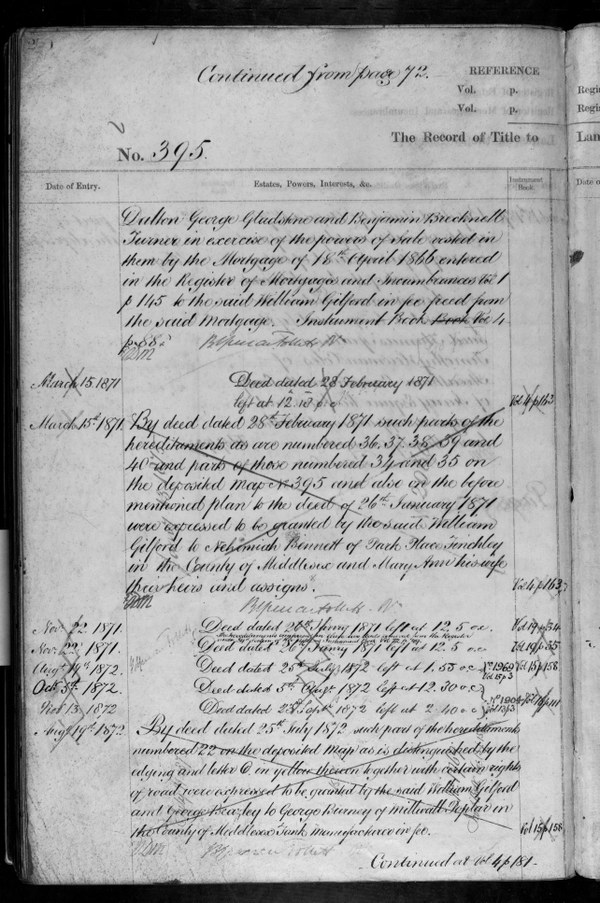 Continued from page 72.
REFERENCE
Vol. p.
Vol. p.
The Record of Title to
No. 395.
Date of Entry.
Estates, Powers, Interests, &c.
Instrument Book.
Dalton George Gladstone and Benjamin Brecknell
Turner in exercise of the powers of Sale vested in
them by the Mortgage of 18th April 1866 entered
in the Register of Mortgages and Incumbrances Vol 1
p 145 to the said William Gilford in fee freed from
the said Mortgage. Instrument Book Book Vol 4
p. 88
March 15 1871
Deed dated 28 February 1871
left at 12.
Vol 4 p 163
March 15th 1871.
By deed dated 28th February 1871 such parts of the
hereditaments as are numbered 36, 37, 38, 39 and
40 and parts of those numbered 34 and 35 on
the deposited map No 395 and also on the before
mentioned plan to the deed of 26th January 1871
were expressed to be granted by the said William
Gilford to Nehemiah Bennett of Park Place Finchley
in the County of Middlesex and Mary Ann his wife
their heirs and assigns.
Vol 4 p 163
Nov. 22 1871.
Deed dated 26 1871 left at 12.5 o.c.
Vol 19 p 54
Nov. 22 1871.
Deed dated 26 1871 left at 12.5 o.c.
Vol 19 p 55
Augt 19th 1872.
Deed dated 25th July 1872 left at 1.55 o.c.
No 1969
Vol 15 p 158
Oct. 5th 1872.
Deed dated 5th Augt 1872 left at 12.30 o.c.
1872
Deed dated 1872 left at 2.40 o.c.
Augt 19th 1872
By deed dated 25th July 1872 such part of the hereditaments
numbered 22 on the deposited map as is distinguished by the
edging and letter C in yellow thereon together with certain rights
of road were expressed to be granted by the said William Gilford
and George Beazley to George Burney of Millwall Poplar in
the County of Middlesex Tank Manufacturer in fee.
Vol 15 p 158
Continued at Vol 4 p 181